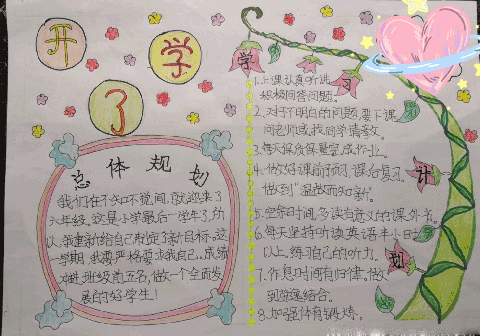 开
学
了
总体规划
我们在不知不觉间,就迎来了
六年级。这是小学最后一学年了,所
以,我重新给自己制定了新目标。这
学期,我要严格要求我自己。成绩
冲进班级前五名,做一个全面发
展的好学生!
学
习
计
划
1.上课认真听讲,
积极回答问题。
2.对于不明白的问题,要下课
问老师或找同学请教。
3.每天保质保量完成作业。
4.做好课前预习,课后复习。
做到“温故而知新”。
5.空余时间,多读有意义的课外书。
6.每天坚持听读英语半小时
以上,练习自己的听力。
7.作息时间有归律。做
到劳逸结合。
8.加强体育锻炼。